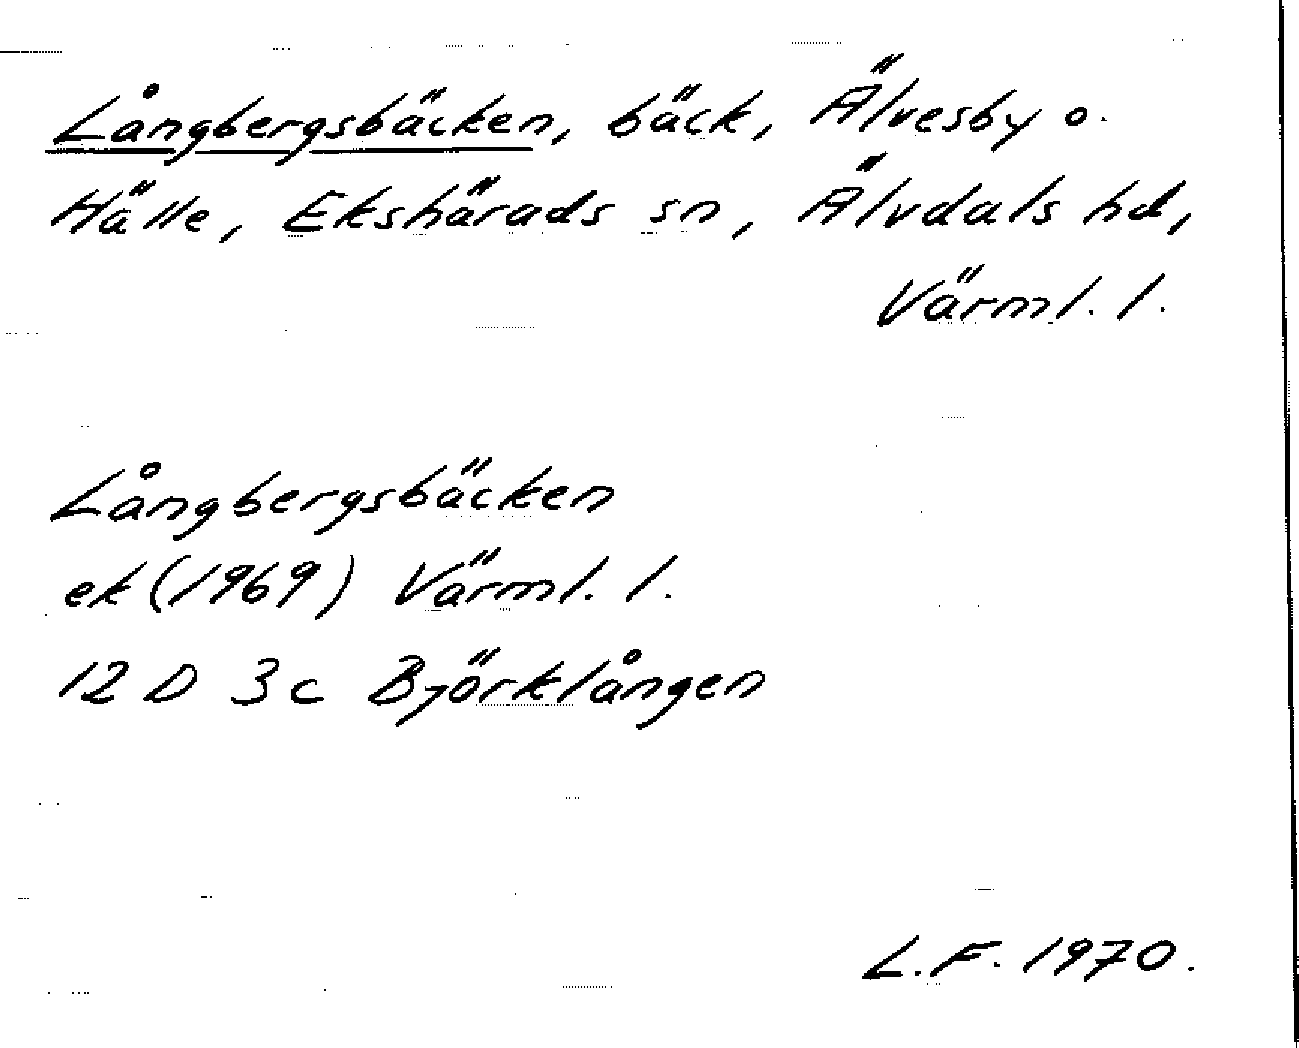 Långbergsbäcken, bäck, Älvesby o.
Hälle, Ekshärads sn, Älvdals hd,
Värml. l.
Långbergsbäcken
ek (1969) Värml. l.
12 D 3 c Björklången
L.F. 1970.